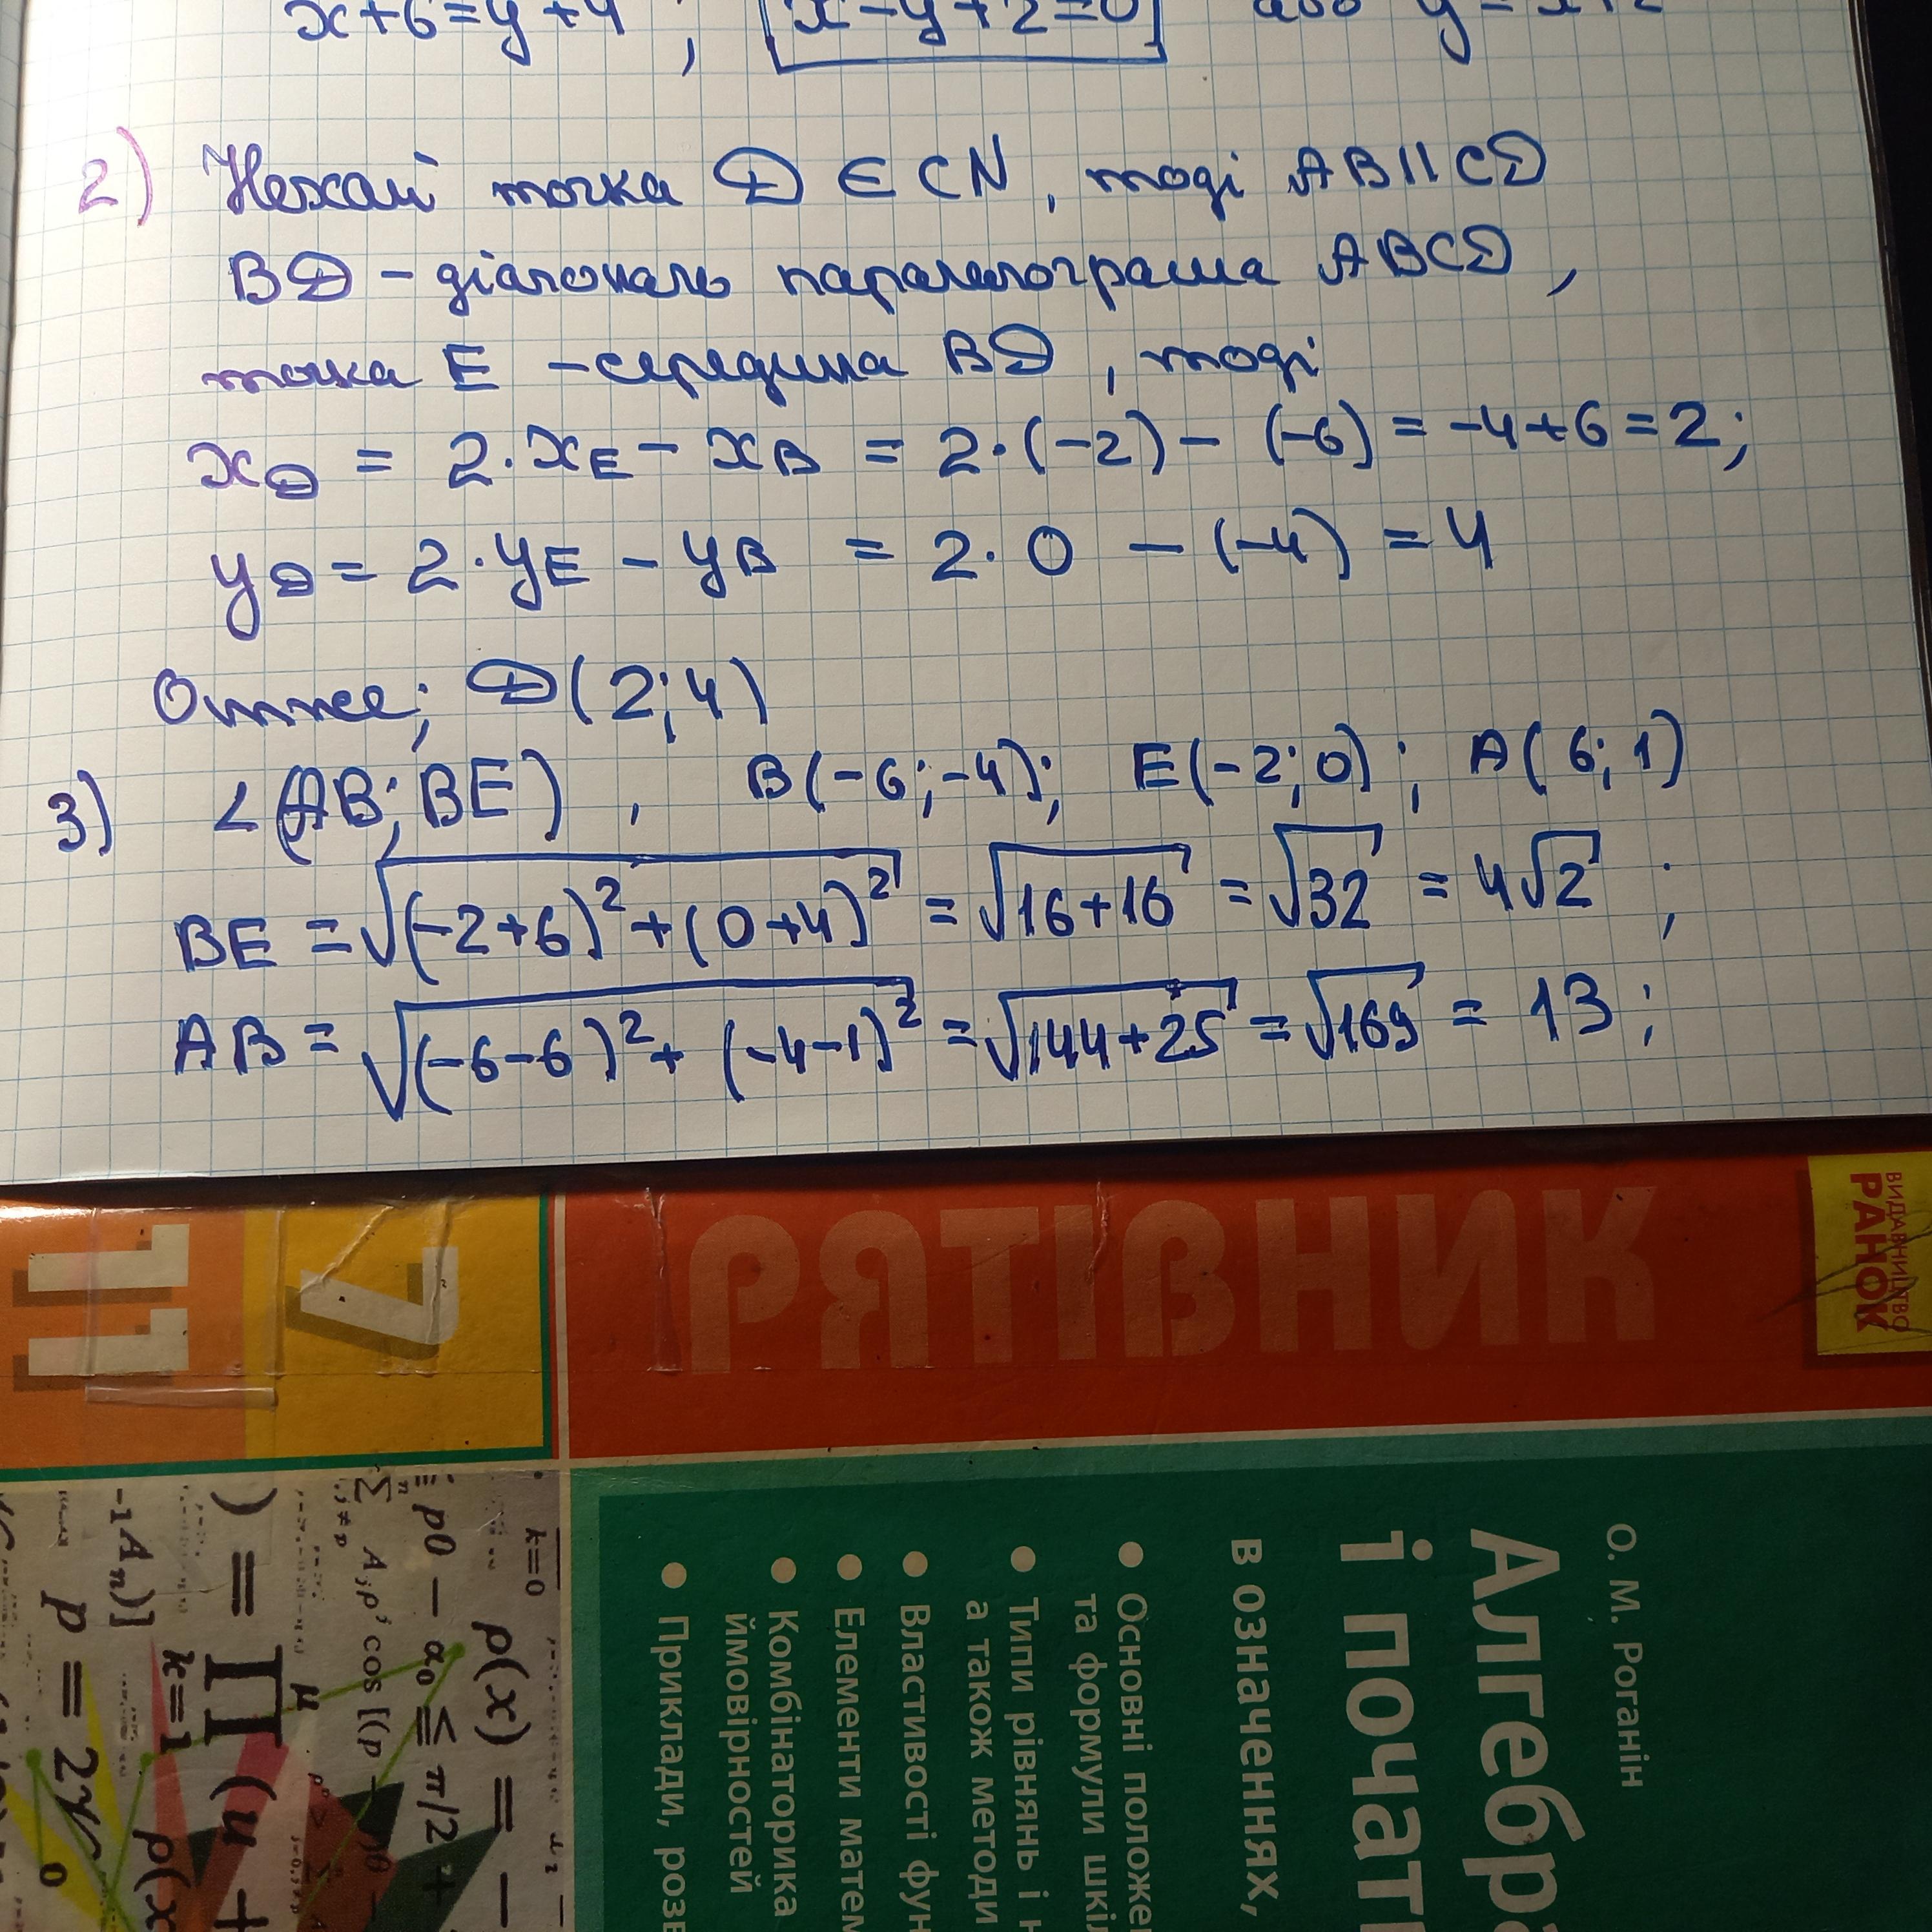 x+6=y+4 ; x-y+2=0 або y=x+2
2) Нехай точка D ∈ CN, тоді AB||CD
BD - діагональ паралелограма ABCD,
точка E - середина BD, тоді
x_D = 2·x_E - x_B = 2·(-2) - (-6) = -4+6 = 2;
y_D = 2·y_E - y_B = 2·0 - (-4) = 4
Отже; D(2;4)
3) ∠(AB;BE), B(-6;-4); E(-2;0); A(6;1)
BE = √((-2+6)²+(0+4)²) = √(16+16) = √32 = 4√2 ;
AB = √((-6-6)²+(-4-1)²) = √(144+25) = √169 = 13;
7
11
РЯТІВНИК
ВИДАВНИЦТВО
РАНОК
О. М. Роганін
Алгебр
і почат
в означеннях,
● Основні положе
та формули шкіл
● Типи рівнянь і н
а також методи
● Властивості фун
● Елементи матем
● Комбінаторика
ймовірностей
● Приклади, розв
k=0
p(x) = -
p0 - α₀ ≤ π/2 +
k=1
p = 2
p(x